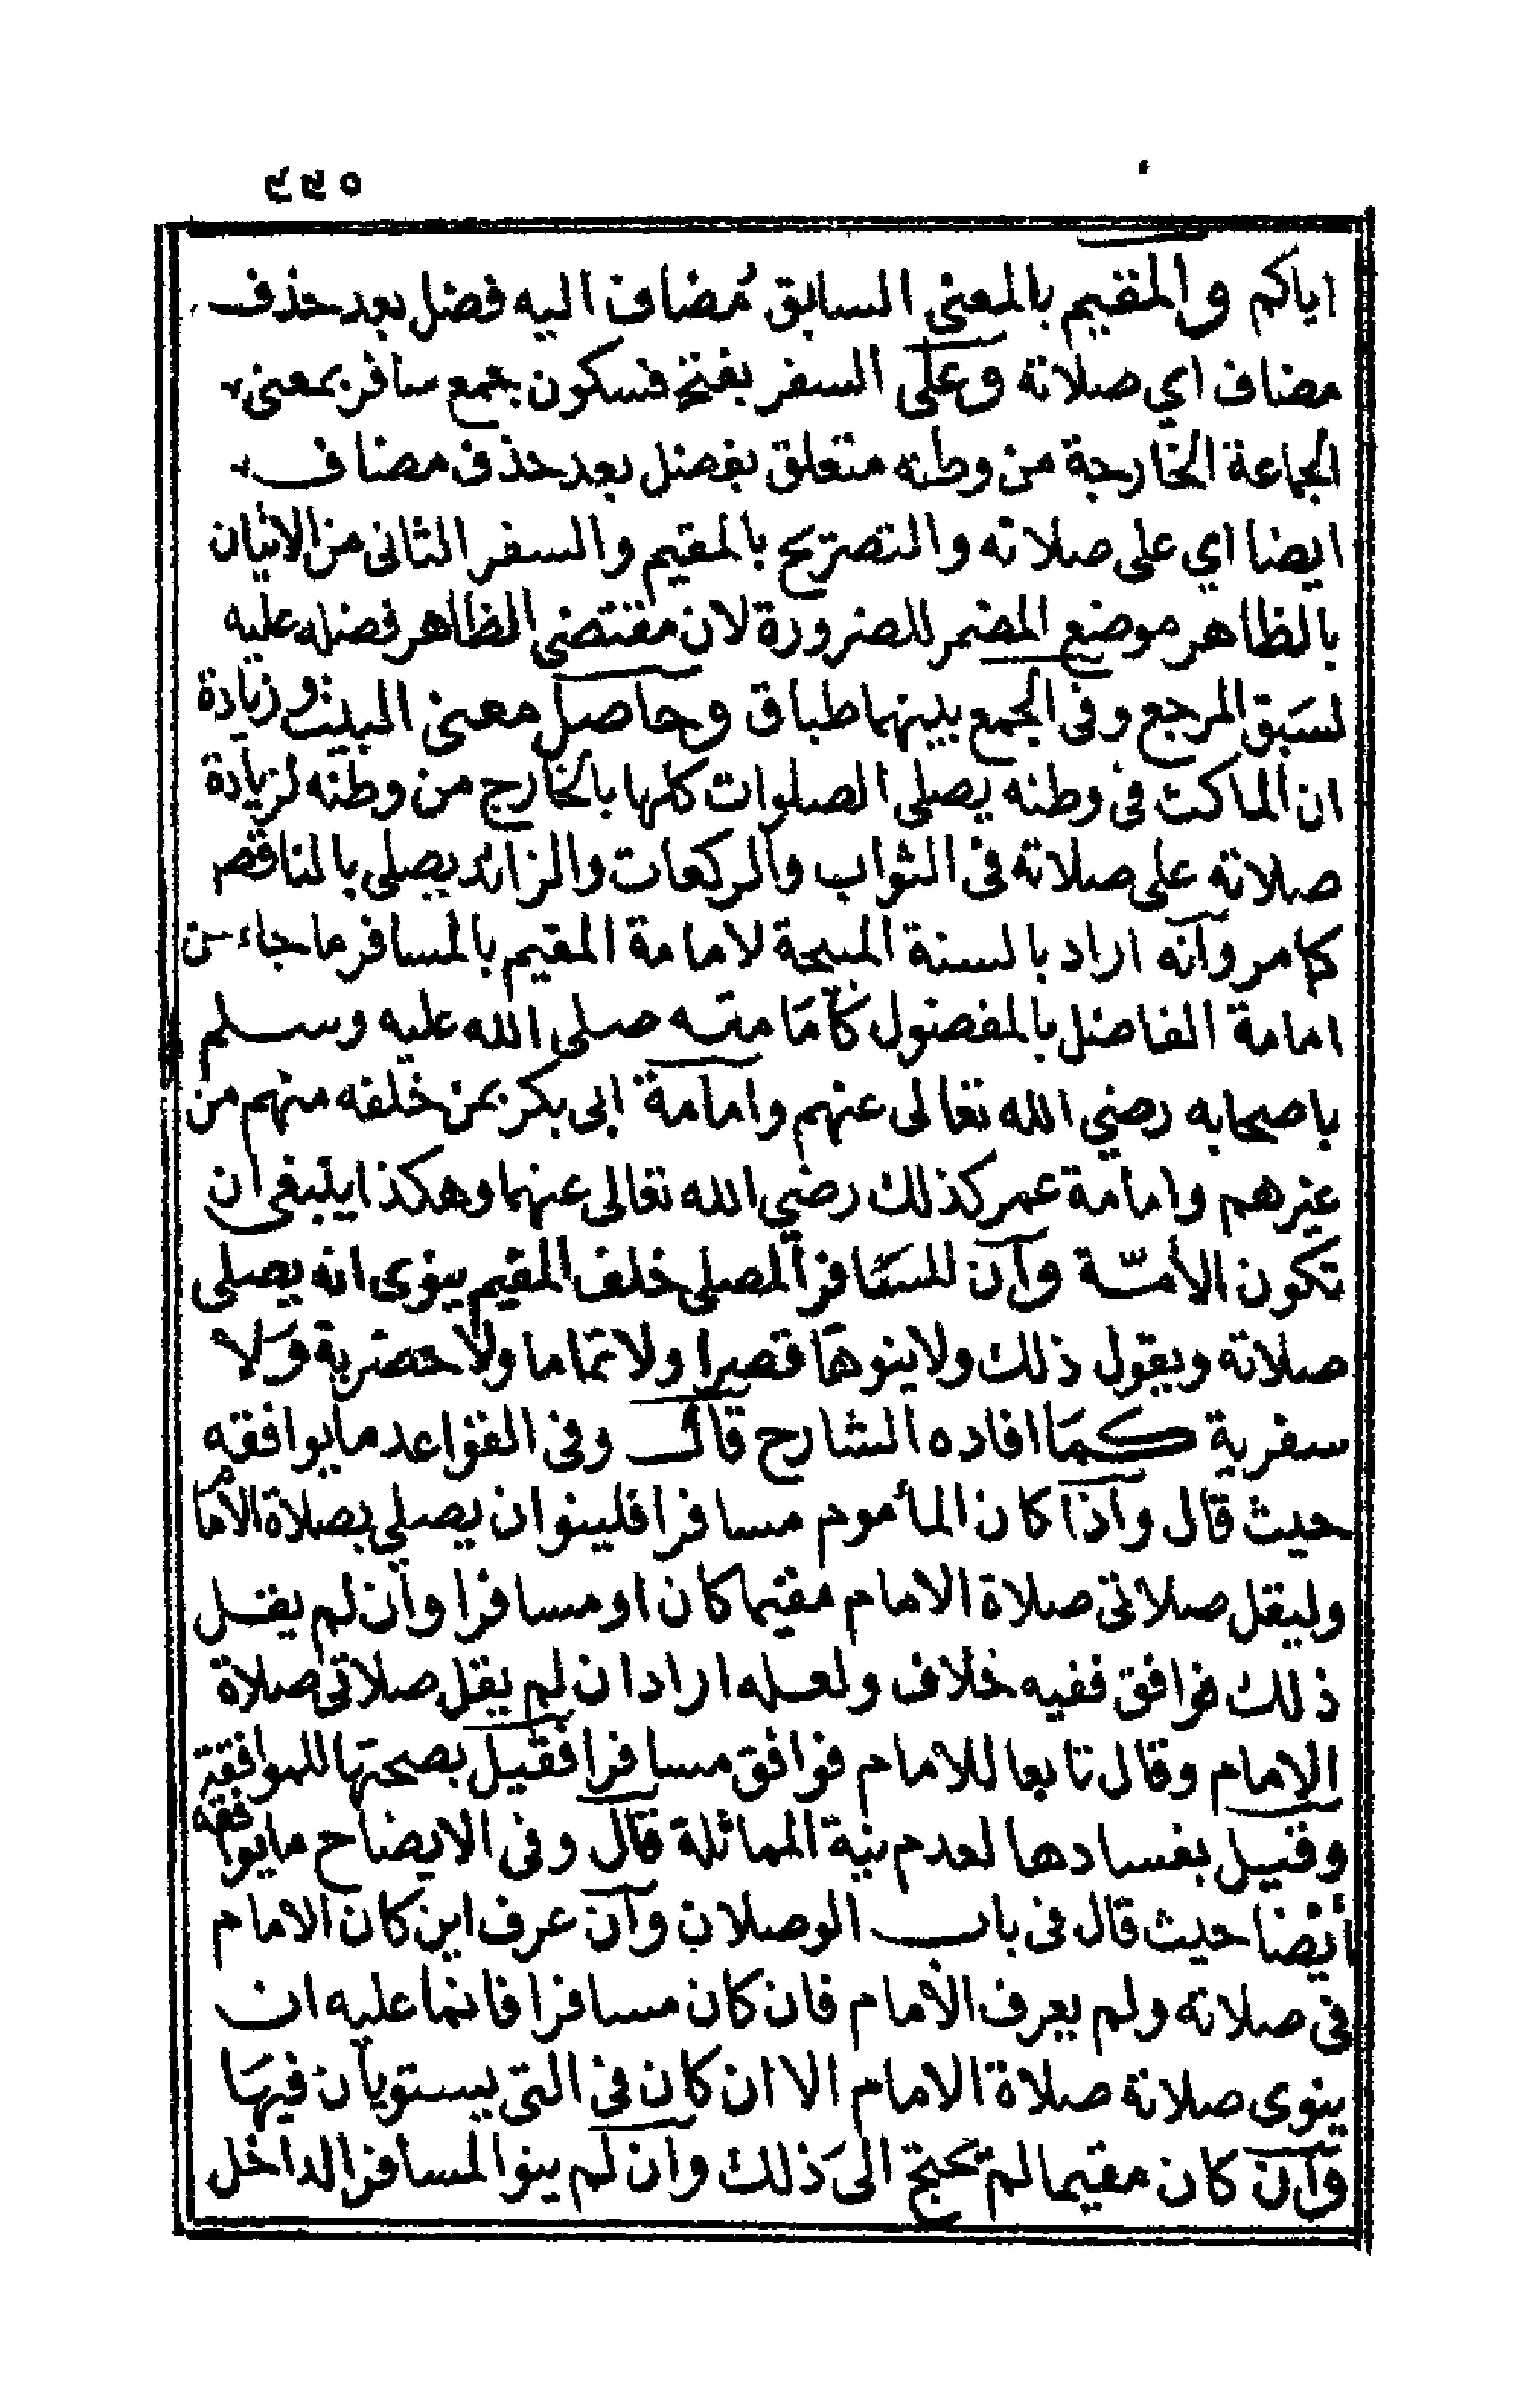 ٤٩٥
اياكم والمقيم بالمعنى السابق مُضاف اليه فضل بعد حذف
مضاف اي صلاته وعلى السفر بفتح فسكون جمع سافر بمعنى
الجماعة الخارجة من وطنه متعلق بفضل بعد حذف مضاف
ايضا اي على صلاته والتصريح بالمقيم والسفر الثانى من الاتيان
بالظاهر موضع المضمر للضرورة لان مقتضى الظاهر فضله عليه
لسَبق المرجع وفى الجمع بينهما طباق وحاصل معنى البيت وزيادة
ان الماكث فى وطنه يصلى الصلوات كلها بالخارج من وطنه لزيادة
صلاته على صلاته فى الثواب والركعات والزائد يصلى بالناقص
كما مر وانه اراد بالسنة المبيحة لامامة المقيم بالمسافر ما جاء من
امامة الفاضل بالمفضول كأمَامته صلى الله عليه وسلم
باصحابه رضي الله تعالى عنهم وامامة ابى بكر بمن خلفه منهم من
غيرهم وامامة عمر كذلك رضي الله تعالى عنهما وهكذا ينبغى ان
تكون الأمّة وان للمسَافر المصلى خلف المقيم ينوى انه يصلى
صلاته ويقول ذلك ولا ينوهَا قصرا ولا تماما ولا حضرية وَلا
سفرية كمَا افاده الشارح قال وفى القواعد ما يوافقه
حيث قال واذا كان المأموم مسافرا فلينو ان يصلي بصلاة الأمام
وليقل صلاتى صلاة الامام مقيما كان او مسافرا وان لم يقل
ذلك فوافق ففيه خلاف ولعله اراد ان لم يقل صلاتى صلاة
الامام وقال تابعا للامام فوافق مسافرا فقيل بصحتها للموافقة
وقيل بفسادها لعدم نية المماثلة قال وفى الايضاح ما يوافقه
أيضا حيث قال فى باب الوصلان وان عرف اين كان الامام
فى صلاته ولم يعرف الأمام فان كان مسافرا فانما عليه ان
ينوى صلاته صلاة الامام الا ان كان فى التى يستويان فيهَا
وان كان مقيما لم يحتج الىَ ذلك وان لم ينو المسافر الداخل